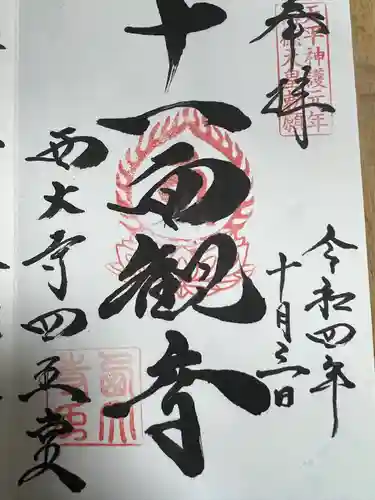 奉拝
天平神護元年
令和四年
十月三日
十一面観音
西大寺四王堂